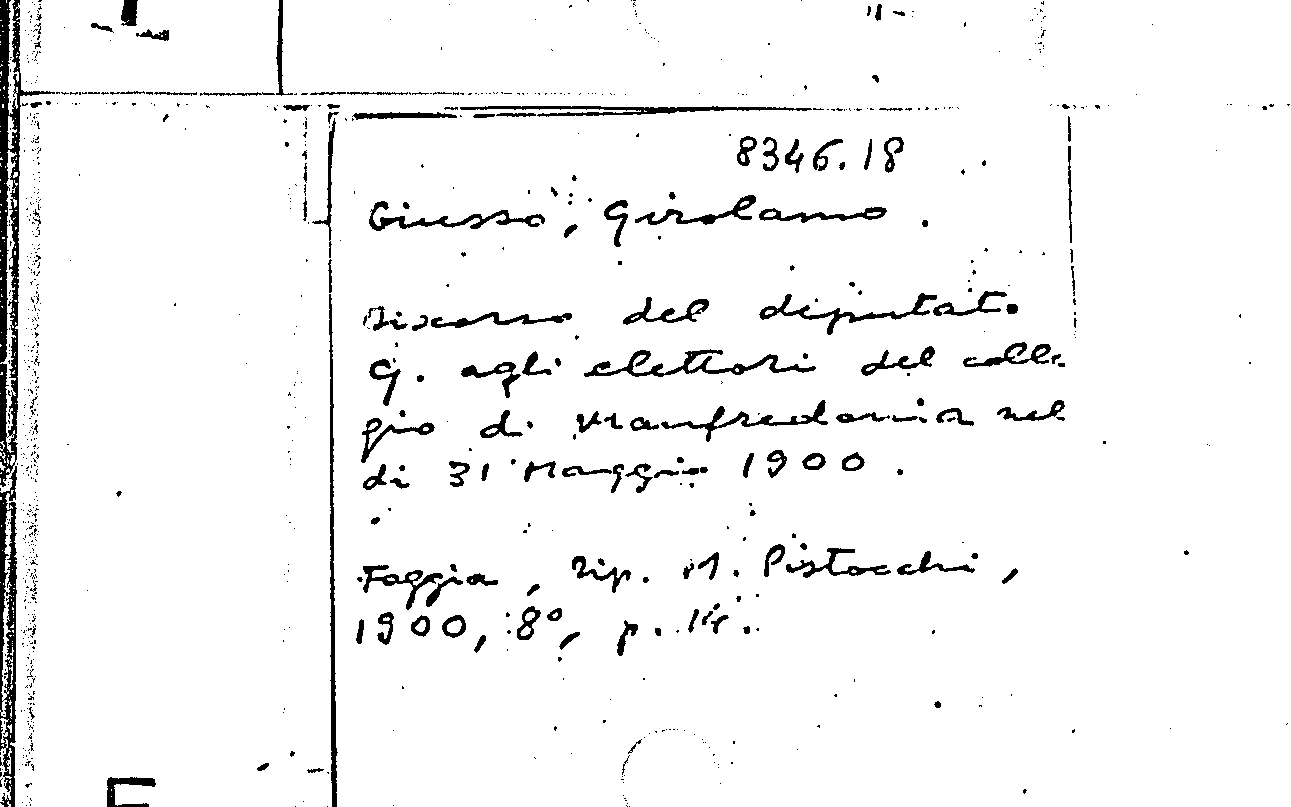 8346.18
Giusso, Girolamo.
Discorso del deputato
G. agli elettori del colle-
gio di Manfredonia nel
dì 31 Maggio 1900.
Foggia, Tip. M. Pistocchi,
1900, 8°, p. 14.